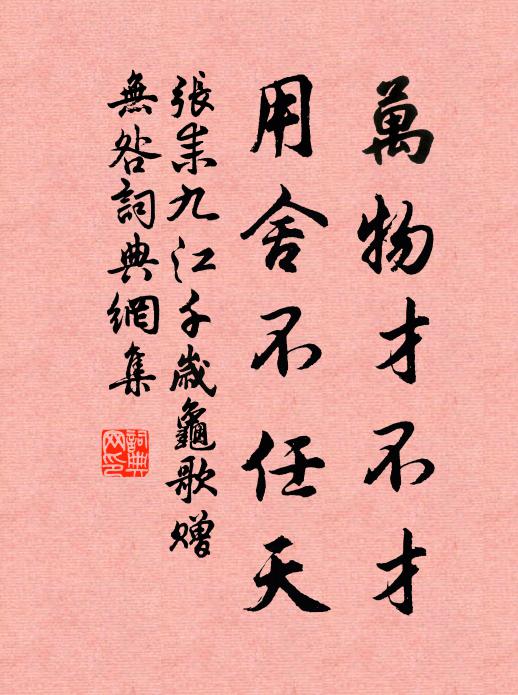 萬物才不才
用舍不任天
張耒九江千歲龜歌贈
無咎詞典網集
詞典網印